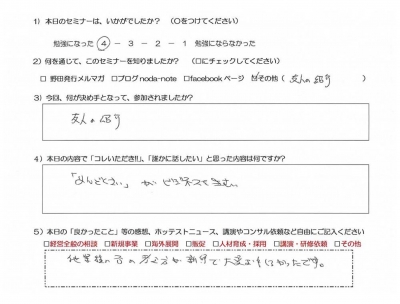 1）本日のセミナーは、いかがでしたか？　（○をつけてください）
勉強になった　4　－　3　－　2　－　1　勉強にならなかった
2）何を通じて、このセミナーを知りましたか？　（□にチェックしてください）
□ 野田発行メルマガ　□ブログnoda-note　□facebookページ　☑その他（ 友人の紹介 ）
3）今回、何が決め手となって、参加されましたか？
友人の紹介
4）本日の内容で「コレいただき!!」、「誰かに話したい」と思った内容は何ですか？
「めんどくさい」がビジネスを生む。
5）本日の「良かったこと」等の感想、ホッテストニュース、講演やコンサル依頼など自由にご記入ください
□経営全般の相談　□新規事業　□海外展開　□販促　□人材育成・採用　□講演・研修依頼　□その他
他業種の方の考え方が新鮮で大変よかったです。